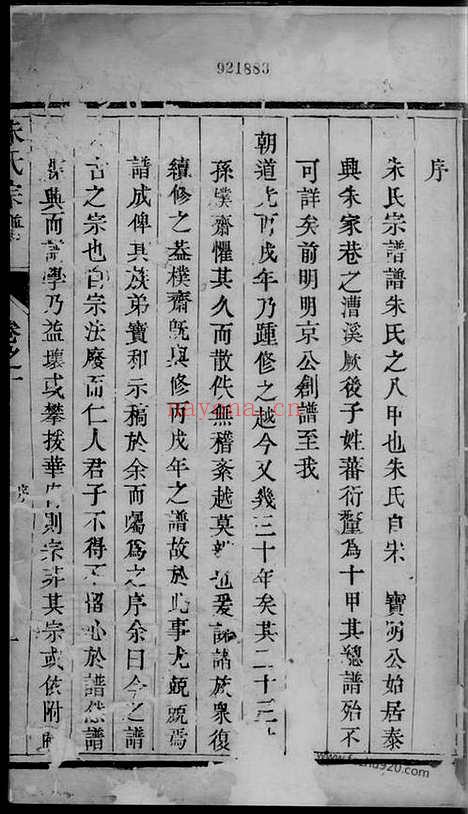 921883
序
朱氏宗譜譜朱氏之八甲也朱氏自宋 寶 公始居泰
興朱家巷之漕溪厥後子姓蕃衍釐為十甲其總譜殆不
可詳矣前明明京公創譜至我
朝道光丙戌年乃踵修之越今又幾三十年矣其二十三
孫樸齋懼其久而散佚無稽紊越莫 也爰 諸族衆復
續修之蓋樸齋旣與修丙戌年之譜故於此事尤兢兢焉
譜成俾其族弟寶和示稿於余而囑為之序余曰今之譜
古之宗也自宗法廢而仁人君子不得不留心於譜然譜
興而譜學乃益壞或攀援華胄則宗非其宗或依附
朱氏宗譜
卷之一
序
一
nayona.cn
www.jiapu920.com